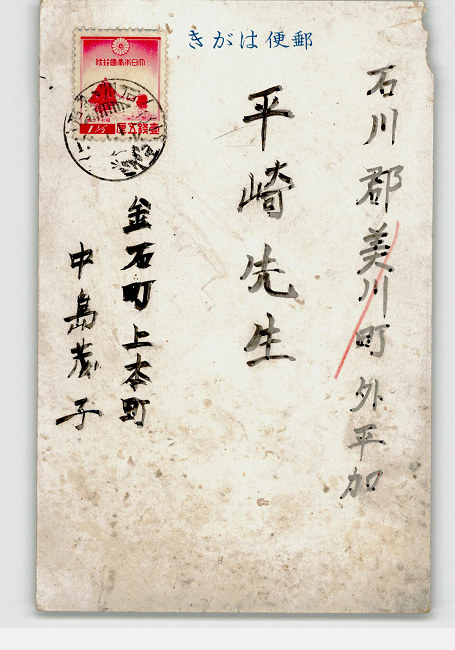 きがは便郵
石川郡美川町外平加
平崎先生
金石町上本町
中島茂子
大日本帝國郵便
1½
壹錢五厘